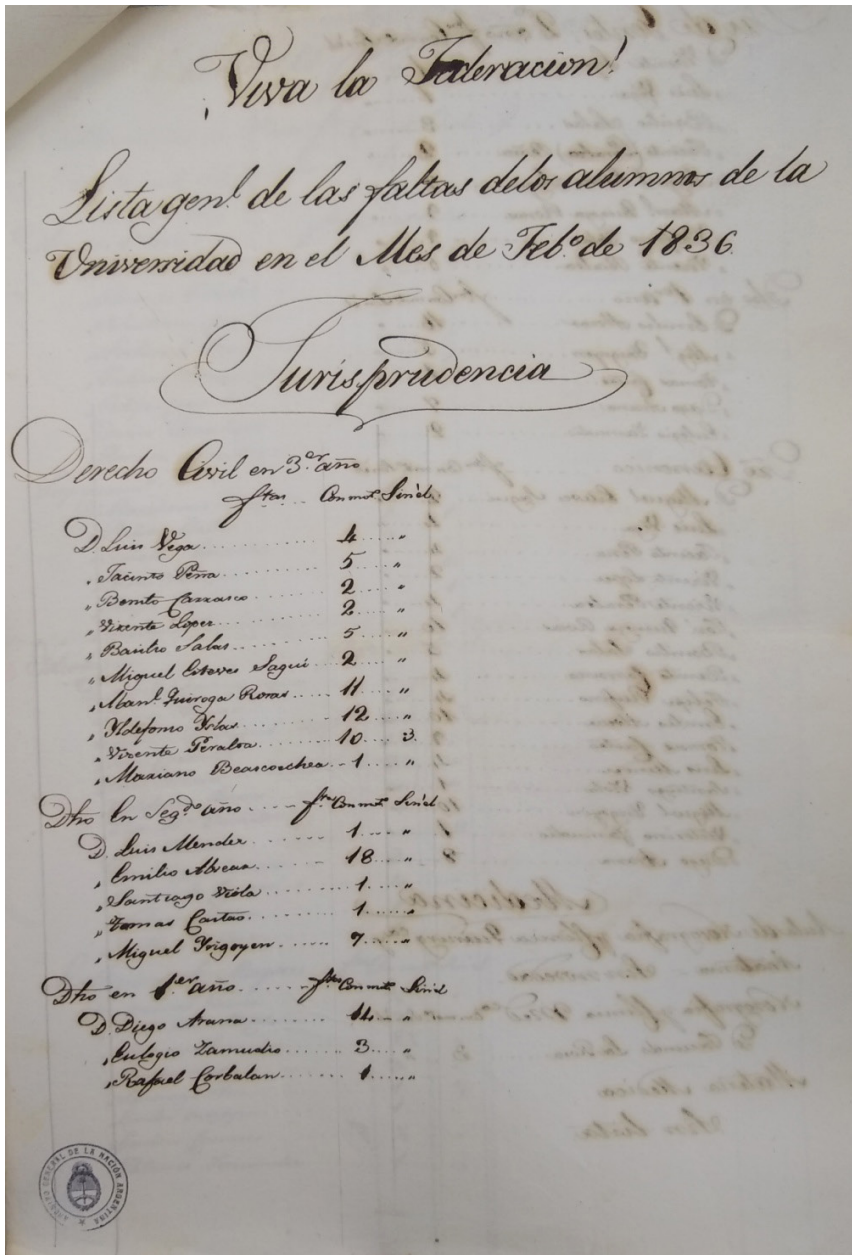 ¡Viva la Federacion!
Lista gen.l de las faltas delos alumnos de la
Universidad en el Mes de Feb.o de 1836.
Jurisprudencia
Derecho Civil en 3.er año
f.tas Con mot. Sin él
D. Luis Vega 4 "
" Jacinto Peña 5 "
" Benito Carrasco 2 "
" Vicente Lopez 2 "
" Basilio Salas 5 "
" Miguel Esteves Sagui 2 "
" Man.l Quiroga Rosas 11 "
" Yldefonso Yslas 12 "
" Vicente Peralta 10 3
" Mariano Beascochea 1 "
Dho En Seg.do año f.tas Con mot. Sin él
D. Luis Mendez 1 "
" Emilio Alvear 18 "
" Santiago Viola 1 "
" Tomas Castro 1 "
" Miguel Yrigoyen 7 "
Dho en 1.er año f.tas Con mot. Sin él
D. Diego Arana 14 "
" Eulogio Zamudio 3 "
" Rafael Corbalan 1 "
ARCHIVO GENERAL DE LA NACIÓN ARGENTINA